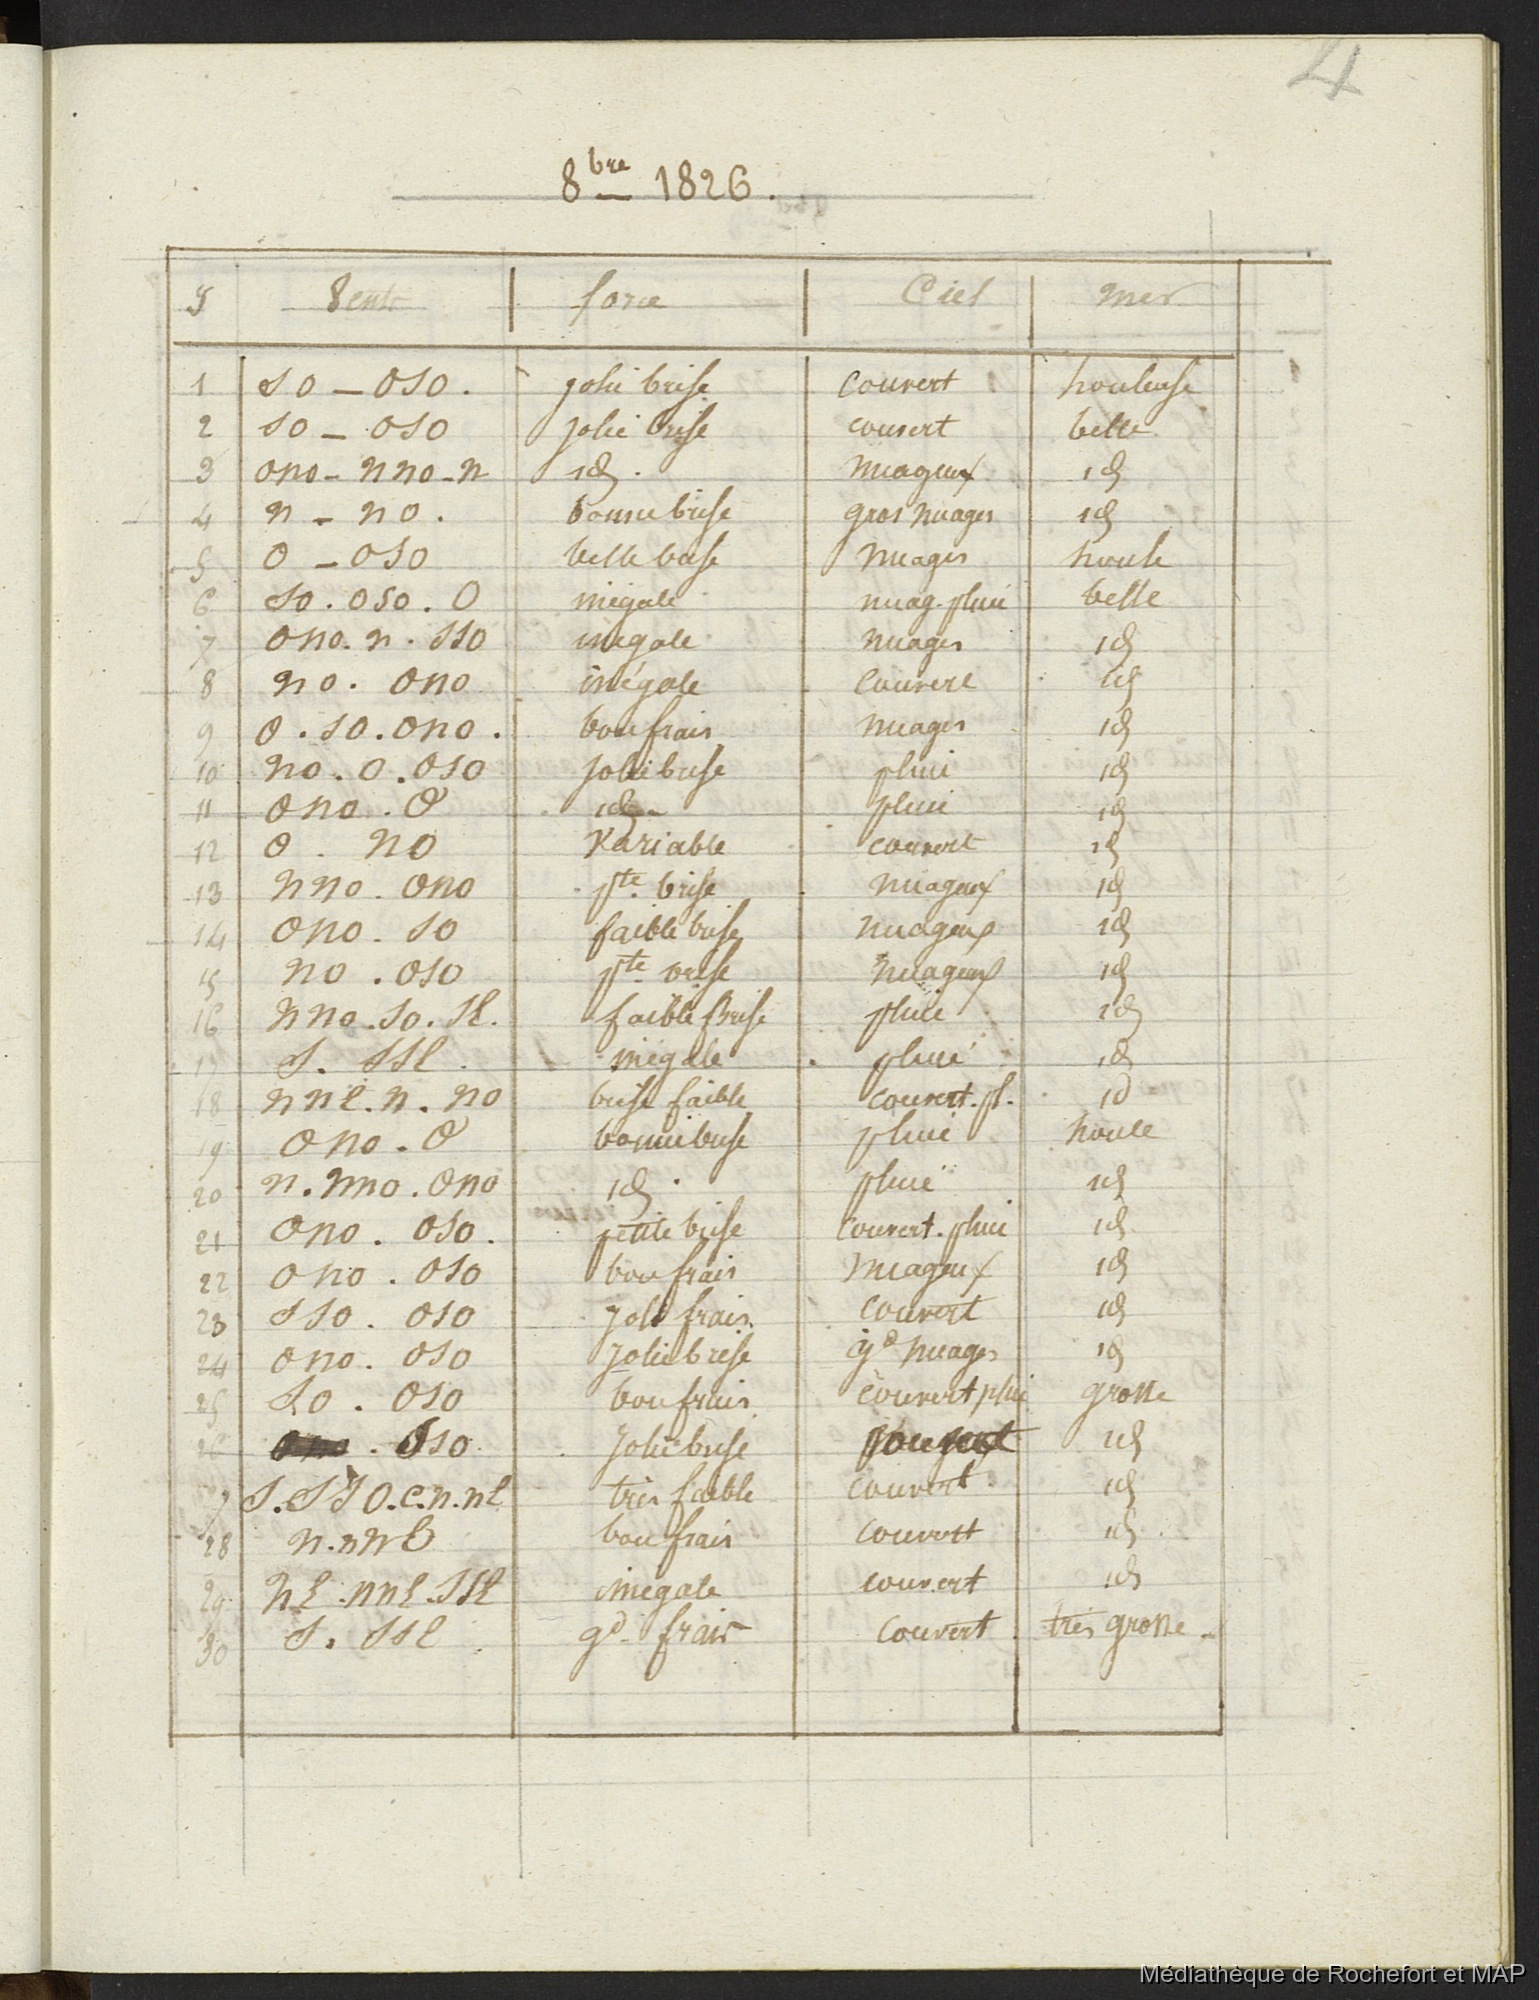 4
8bre 1826.
J Vents force Ciel mer
1 SO – OSO. jolie brise couvert houleuse
2 SO – OSO jolie brise couvert belle
3 ONO – NNO – N id. nuageux id
4 N – NO. bonne brise gros nuages id
5 O – OSO belle brise nuages houle
6 SO. OSO. O inégale nuag. pluie belle
7 ONO. N. SSO inegale nuages id
8 NO. ONO inégale couvert id
9 O. SO. ONO. bon frais nuages id
10 NO. O. OSO jolie brise pluie id
11 ONO. O id pluie id
12 O. NO Variable couvert id
13 NNO. ONO pte brise nuageux id
14 ONO. SO faible brise nuageux id
15 NO. OSO pte brise nuageux id
16 NNO. SO. SE. faible Brise pluie id
17 S. SSE. inégale pluie id
18 NNE. N. NO brise faible couvert. pl. id
19 ONO. O bonne brise pluie houle
20 N. NNO. ONO id. pluie id
21 ONO. OSO. petite brise couvert. pluie id
22 ONO. OSO bon frais Nuageux id
23 SSO. OSO joli frais. couvert id
24 ONO. OSO Jolie brise gd nuages id
25 SO. OSO bon frais couvert pluie grosse
26 OSO. Jolie brise id
7 S. SSO. E. N. NE très faible couvert id
28 N. NNE bon frais couvert id
29 NE. NNE. SSE inegale couvert id
30 S. SSE gd frais couvert. très grosse
Médiathèque de Rochefort et MAP